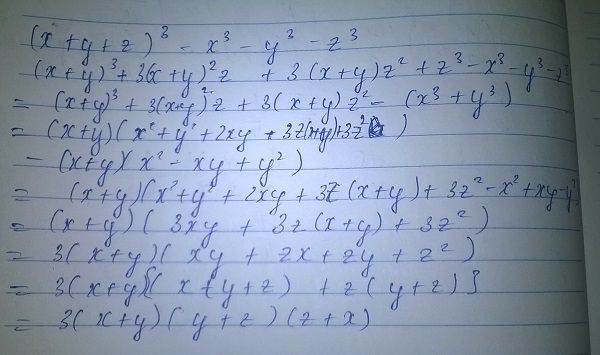 (x+y+z)³ - x³ - y³ - z³
(x+y)³ + 3(x+y)²z + 3(x+y)z² + z³ - x³ - y³ - z³
= (x+y)³ + 3(x+y)²z + 3(x+y)z² - (x³ + y³)
= (x+y)(x² + y² + 2xy + 3z(x+y) + 3z²)
- (x+y)(x² - xy + y²)
= (x+y)(x² + y² + 2xy + 3z(x+y) + 3z² - x² + xy - y²
= (x+y)(3xy + 3z(x+y) + 3z²)
= 3(x+y)(xy + zx + zy + z²)
= 3(x+y)[(x+y+z) + z(y+z)]
= 3(x+y)(y+z)(z+x)